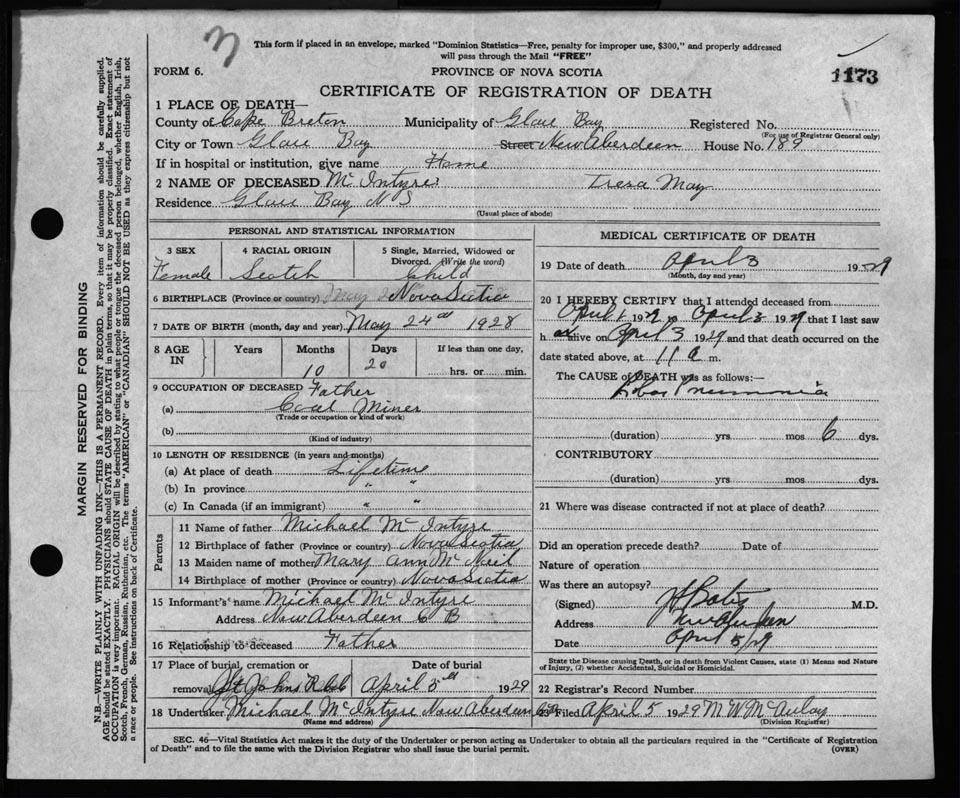 3
This form if placed in an envelope, marked "Dominion Statistics—Free, penalty for improper use, $300," and properly addressed
will pass through the Mail "FREE"
FORM 6.
PROVINCE OF NOVA SCOTIA
1173
CERTIFICATE OF REGISTRATION OF DEATH
1 PLACE OF DEATH—
County of Cape Breton Municipality of Glace Bay Registered No.
(For use of Registrar General only)
City or Town Glace Bay Street New Aberdeen House No. 189
If in hospital or institution, give name Home
2 NAME OF DECEASED McIntyre Tresa May
Residence Glace Bay N S
(Usual place of abode)
PERSONAL AND STATISTICAL INFORMATION
3 SEX 4 RACIAL ORIGIN 5 Single, Married, Widowed or
Divorced. (Write the word)
Female Scotch Child
6 BIRTHPLACE (Province or country) Nova Scotia
7 DATE OF BIRTH (month, day and year) May 24th 1928
8 AGE IN Years Months Days If less than one day,
10 20 hrs. or min.
9 OCCUPATION OF DECEASED Father
(a) Coal Miner
(Trade or occupation or kind of work)
(b)
(Kind of industry)
10 LENGTH OF RESIDENCE (in years and months)
(a) At place of death Lifetime
(b) In province " "
(c) In Canada (if an immigrant) " "
Parents
11 Name of father Michael McIntyre
12 Birthplace of father (Province or country) Nova Scotia
13 Maiden name of mother Mary Ann McNeil
14 Birthplace of mother (Province or country) Nova Scotia
15 Informant's name Michael McIntyre
Address New Aberdeen C B
16 Relationship to deceased Father
17 Place of burial, cremation or Date of burial
removal St Johns April 5th 1929
18 Undertaker Michael McIntyre New Aberdeen
(Name and address)
MEDICAL CERTIFICATE OF DEATH
19 Date of death April 3 1929
(Month, day and year)
20 I HEREBY CERTIFY that I attended deceased from
April 1 1929 to April 3 1929 that I last saw
h er alive on April 3 1929 and that death occurred on the
date stated above, at 11 a m.
The CAUSE of DEATH was as follows:—
Lobar Pneumonia
(duration) yrs mos 6 dys.
CONTRIBUTORY
(duration) yrs. mos dys.
21 Where was disease contracted if not at place of death?
Did an operation precede death? Date of
Nature of operation
Was there an autopsy?
(Signed) M.D.
Address New Aberdeen
Date April 5/29
State the Disease causing Death, or in death from Violent Causes, state (1) Means and Nature
of Injury, (2) whether Accidental, Suicidal or Homicidal.
22 Registrar's Record Number
23 Filed April 5 1929 M W McAulay
(Division Registrar)
SEC. 46—Vital Statistics Act makes it the duty of the Undertaker or person acting as Undertaker to obtain all the particulars required in the "Certificate of Registration
of Death" and to file the same with the Division Registrar who shall issue the burial permit. (OVER)
MARGIN RESERVED FOR BINDING
N.B.—WRITE PLAINLY WITH UNFADING INK—THIS IS A PERMANENT RECORD. Every item of information should be carefully supplied.
AGE should be stated EXACTLY. PHYSICIANS should STATE CAUSE OF DEATH in plain terms, so that it may be properly classified. Exact statement of
OCCUPATION is very important. RACIAL ORIGIN will be described by stating to what people or tongue the deceased person belonged, whether English, Irish,
Scotch, French, German, Russian, Ruthenian, etc. The terms "AMERICAN" or "CANADIAN" SHOULD NOT BE USED as they express citizenship but not
a race or people. See instructions on back of Certificate.